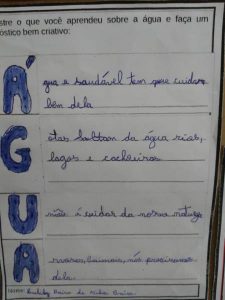 stre o que você aprendeu sobre a água e faça um
óstico bem criativo:
Á gua e saudável tem que cuidar
bem dela
G otas da água rios,
lagos e cachoeiras
U nião á cuidar da nossa natureza
A rvores, , nós precisamos
dela
Nome: da Silva